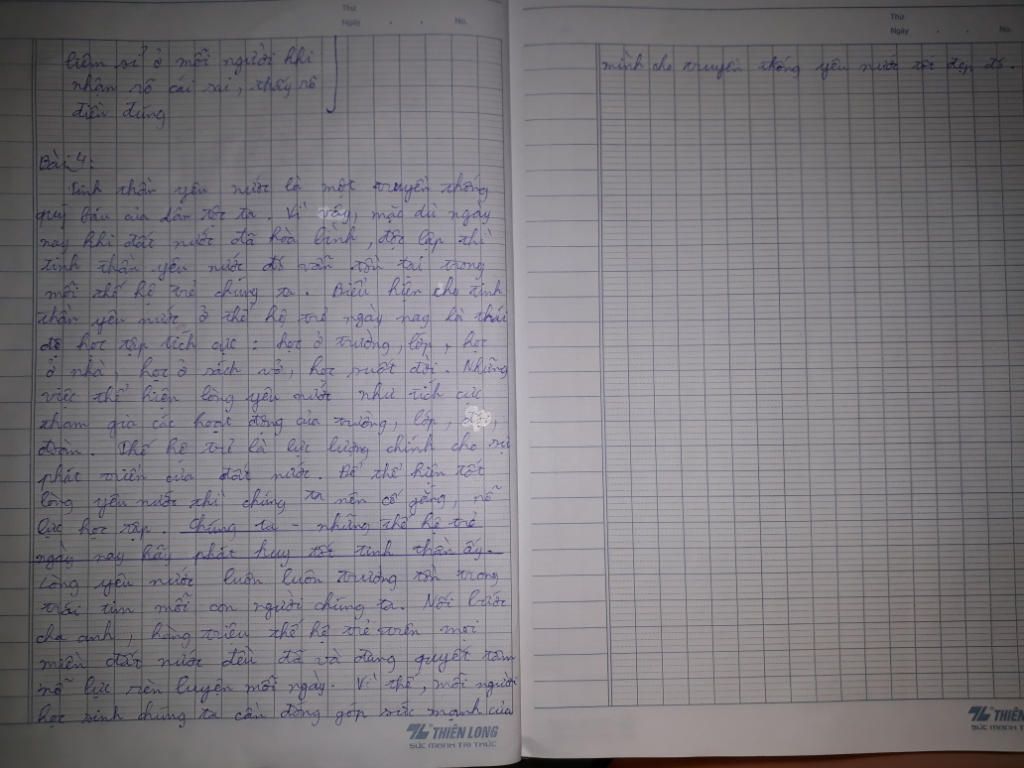 Thứ
Ngày . . No.
liêm sỉ ở mỗi người khi
nhận rõ cái sai, thấy rõ
điều đúng
Bài 4:
Tinh thần yêu nước là một truyền thống
quý báu của dân tộc ta. Vì vậy, mặc dù ngày
nay khi đất nước đã hòa bình, độc lập thì
tinh thần yêu nước đó vẫn tồn tại trong
mỗi thế hệ trẻ chúng ta. Biểu hiện cho tinh
thần yêu nước ở thế hệ trẻ ngày nay là thái
độ học tập tích cực: học ở trường, lớp, học
ở nhà, học ở sách vở, học suốt đời. Những
việc thể hiện lòng yêu nước như tích cực
tham gia các hoạt động của trường, lớp,
đoàn. Thế hệ trẻ là lực lượng chính cho sự
phát triển của đất nước. Để thể hiện tốt
lòng yêu nước thì chúng ta nên cố gắng, nỗ
lực học tập. Chúng ta - những thế hệ trẻ
ngày nay hãy phát huy tốt tinh thần ấy.
Lòng yêu nước luôn luôn trường tồn trong
trái tim mỗi con người chúng ta. Nối bước
cha anh, hàng triệu thế hệ trẻ trên mọi
miền đất nước đều đã và đang quyết tâm
nỗ lực rèn luyện mỗi ngày. Vì thế, mỗi người
học sinh chúng ta cần đóng góp sức mạnh của
THIÊN LONG
SỨC MẠNH TRI THỨC
Thứ
Ngày . . No.
mình cho truyền thống yêu nước tốt đẹp đó.
THIÊN
SỨC MẠNH TRI